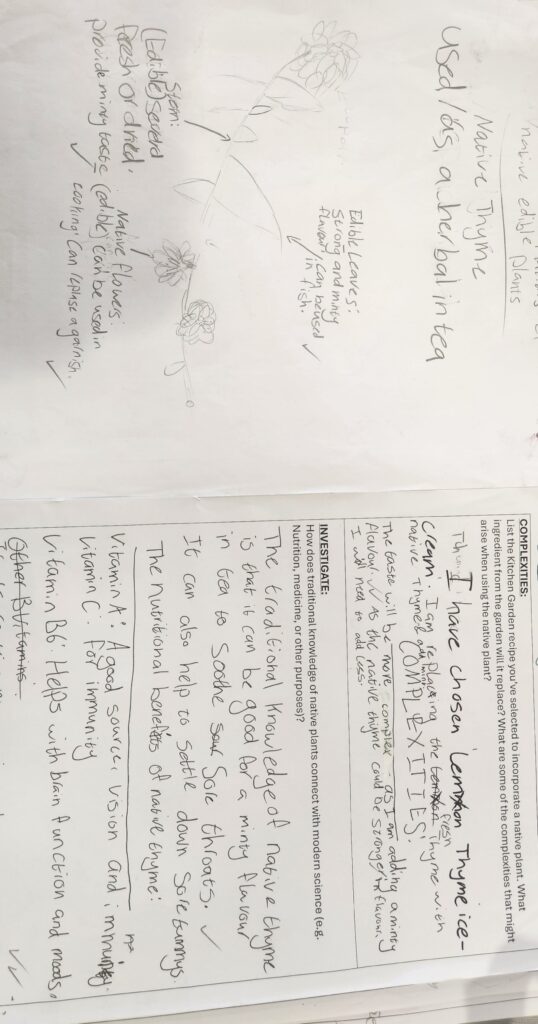 native edible plants
Native Thyme
used/as, a herbal in tea
Edible Leaves:
Strong and minty
flavour, can be used
in fish.
Stem:
(Edible)
Fresh or dried,
provide minty taste
Native flowers:
(edible) can be used in
cooking. Can replase a garnish.
COMPLEXITIES:
List the Kitchen Garden recipe you've selected to incorporate a native plant. What
ingredient from the garden will it replace? What are some of the complexities that might
arise when using the native plant?
I have chosen Lemon Thyme ice-
cream. I am replacing the fresh thyme with
native thyme.
COMPLEXITIES:
The taste will be more complex - as I am adding a minty
flavour. As the native thyme could be stronger in flavour,
I will need to add less.
INVESTIGATE:
How does traditional knowledge of native plants connect with modern science (e.g.
Nutrition, medicine, or other purposes)?
The traditional knowledge of native thyme
is that it can be good for a minty flavour
in tea to soothe sore throats.
It can also help to settle down sore tummys.
The nutritional benefits of native thyme:
Vitamin A: A good source, vision and immunity
Vitamin C: for immunity
Vitamin B6: Helps with brain function and moods.
Other B Vitamins